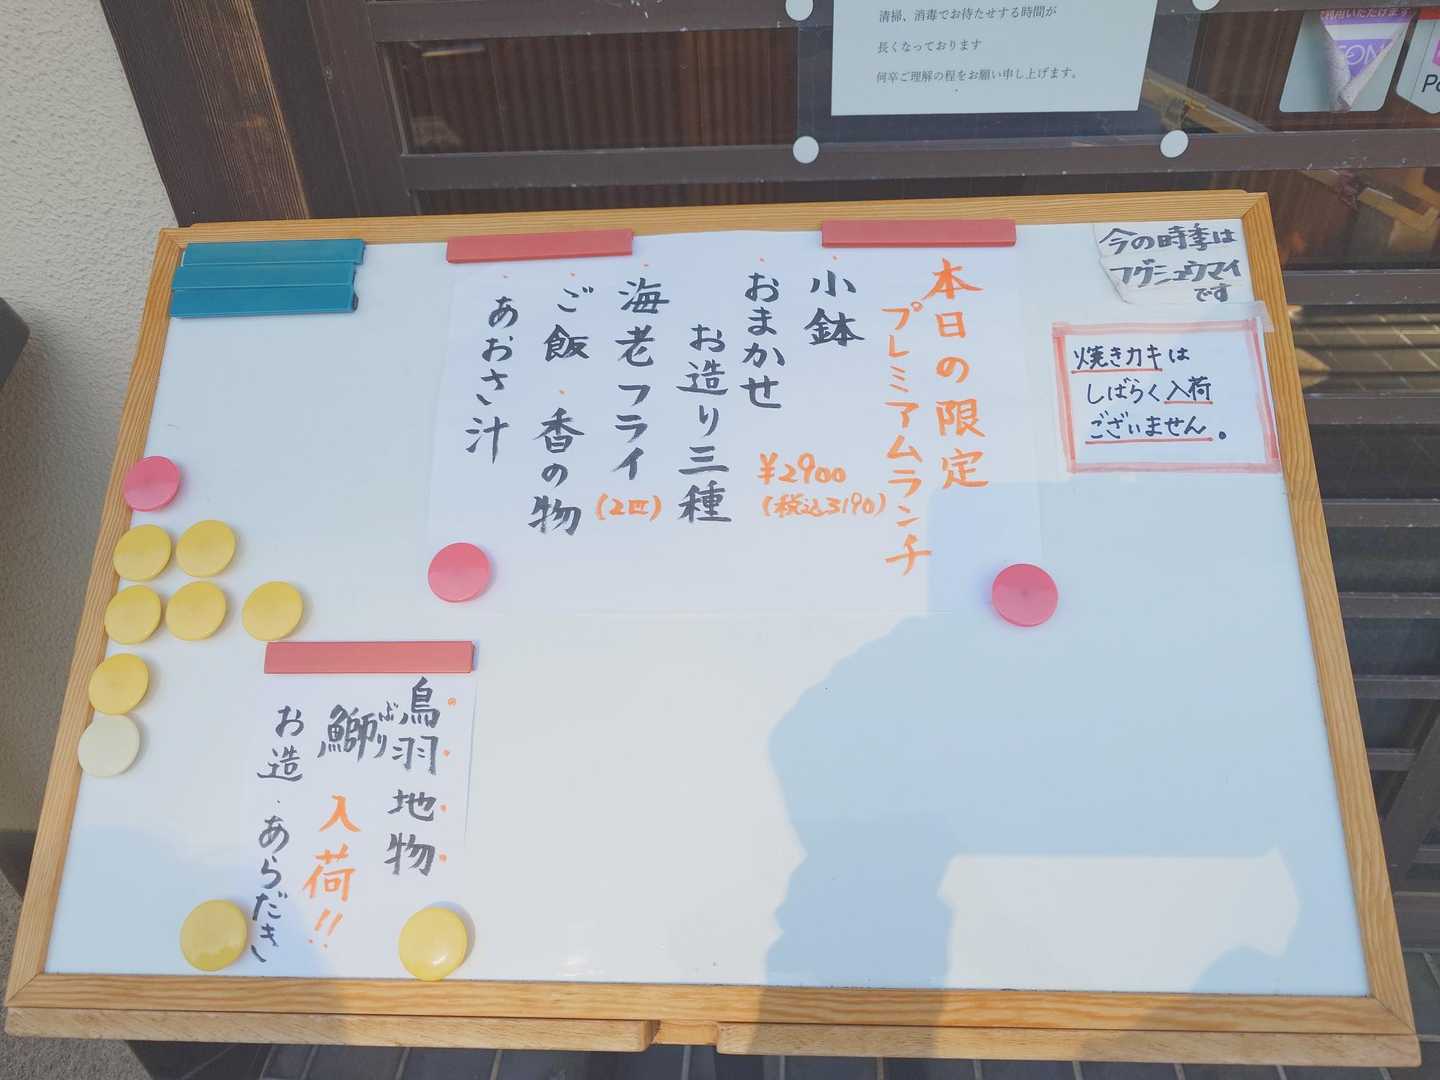 清掃、消毒でお待たせする時間が
長くなっております
何卒ご理解の程をお願い申し上げます。
利用いただけます
今の時季は
フグシュウマイ
です
焼きカキは
しばらく入荷
ございません。
本日の限定
プレミアムランチ
・小鉢
・おまかせ
お造り三種
¥2900
(税込3190)
・海老フライ
(2匹)
・ご飯・香の物
・あおさ汁
鳥羽地物
鰤ぶり
入荷!!
お造・あらだき